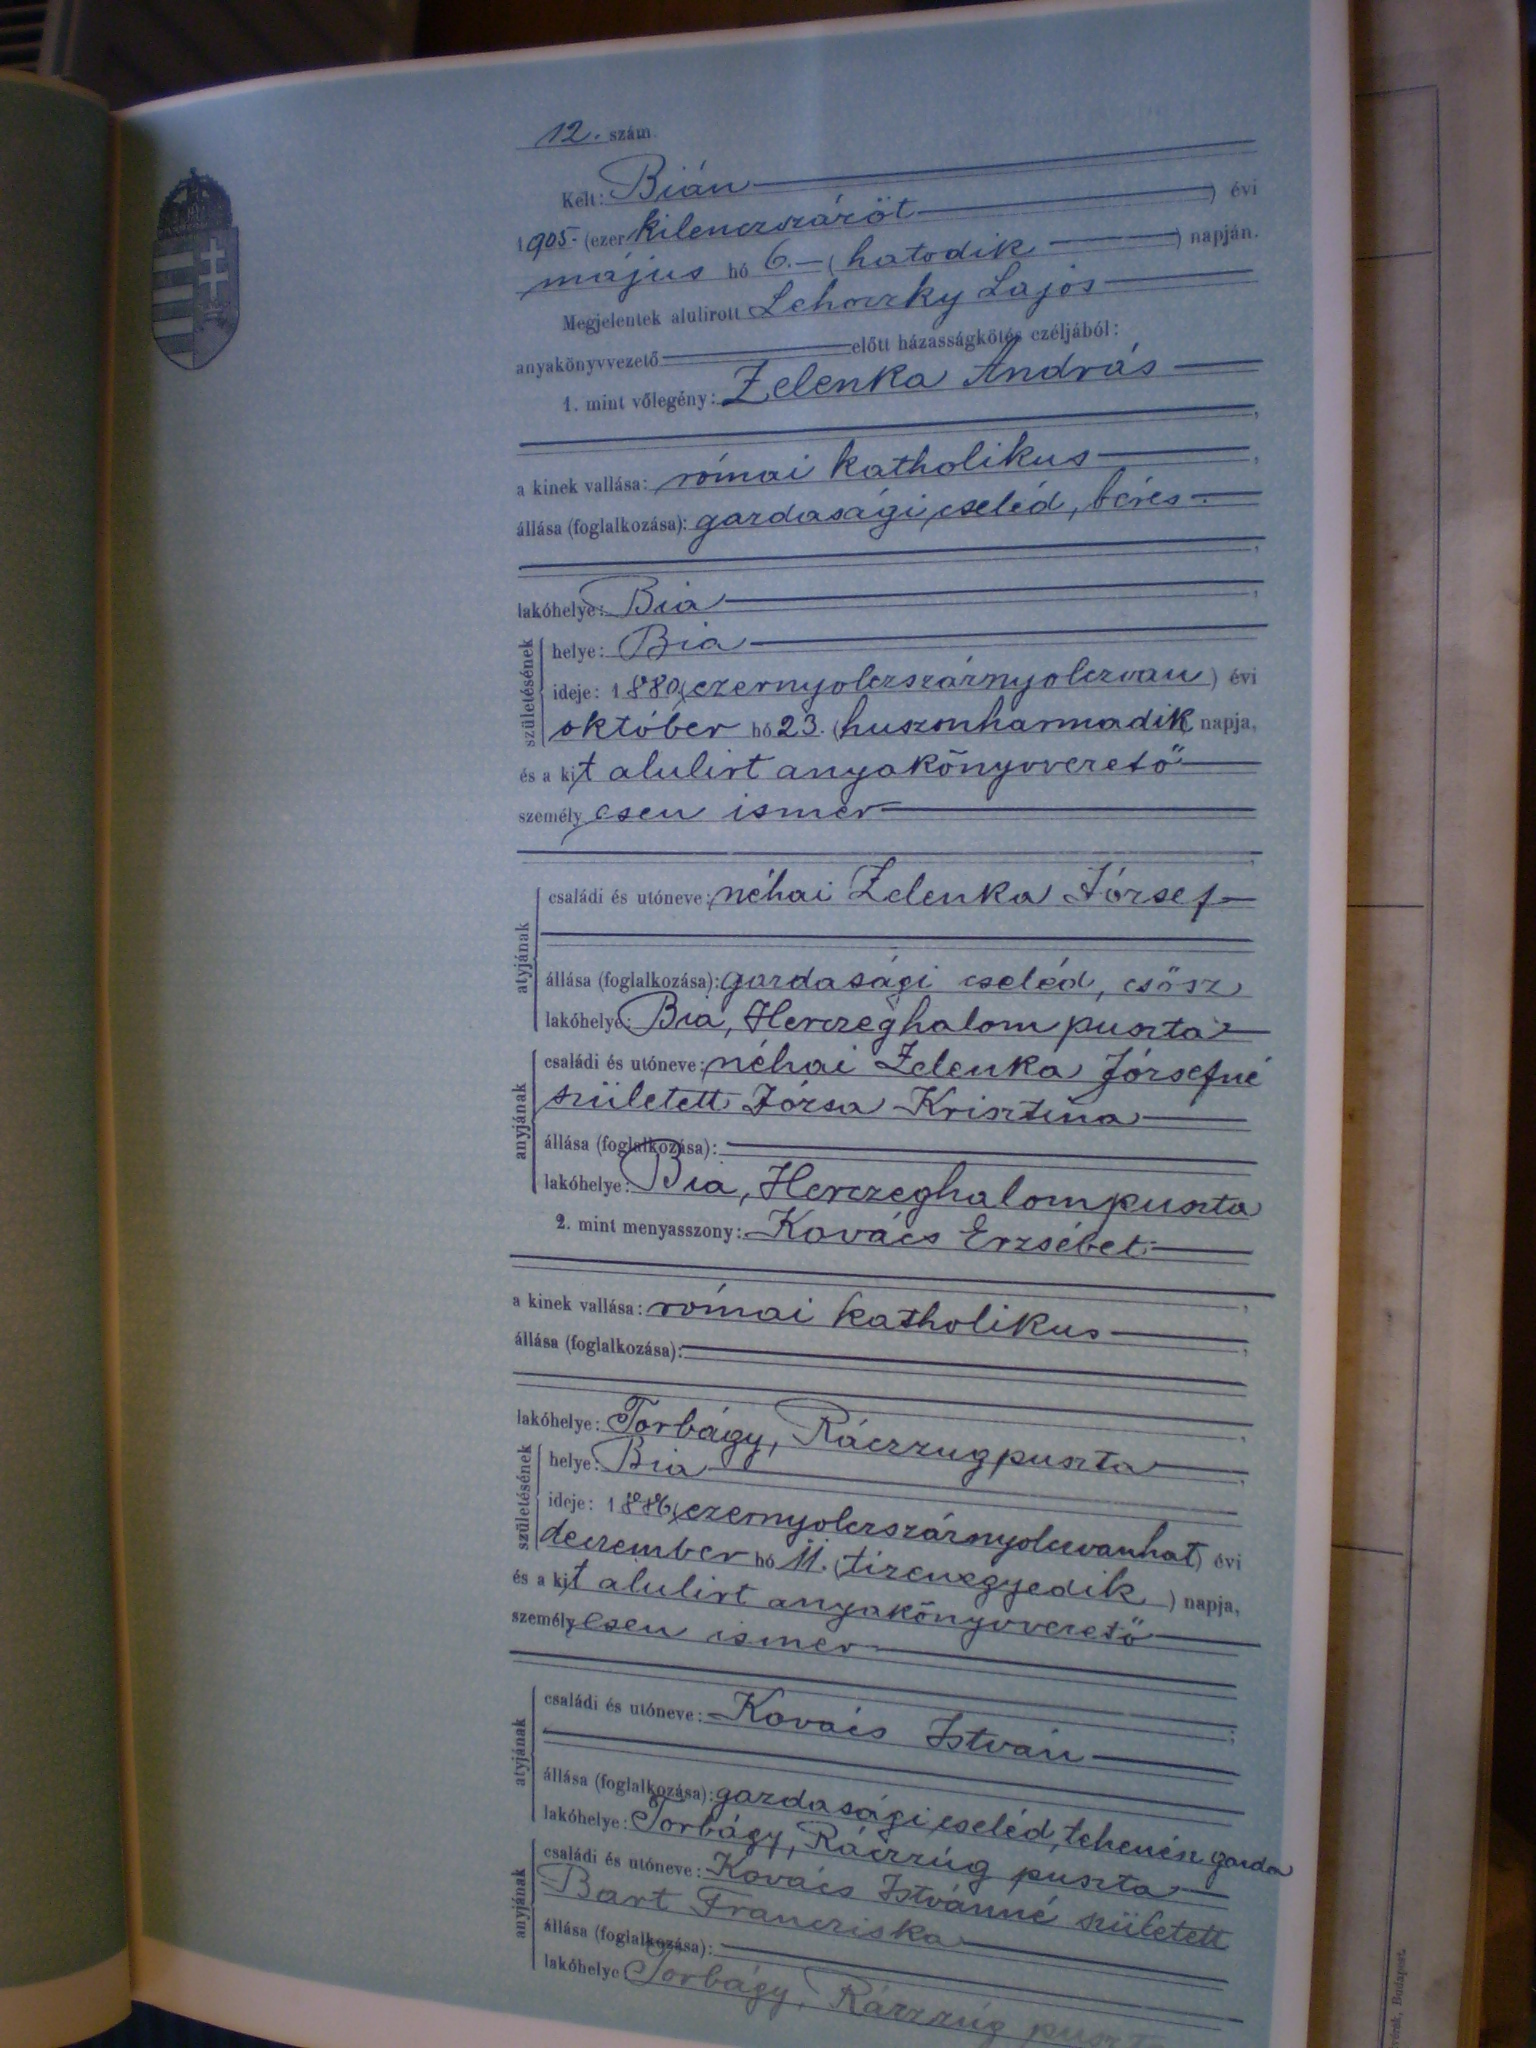 12. szám
Kelt: Bián
1905. (ezer kilenczszázöt) évi
május hó 6. (hatodik) napján.
Megjelentek alulirott Lehoczky Lajos
anyakönyvvezető előtt házasságkötés czéljából:
1. mint vőlegény: Zelenka András
a kinek vallása: római katholikus,
állása (foglalkozása): gazdasági cseléd, béres.
lakóhelye: Bia,
születésének
helye: Bia
ideje: 1880 (ezernyolczszáznyolczvan) évi
október hó 23. (huszonharmadik) napja,
és a kit alulirt anyakönyvvezető
személyesen ismer
atyjának
családi és utóneve: néhai Zelenka József
állása (foglalkozása): gazdasági cseléd, csősz
lakóhelye: Bia, Herczeghalom puszta
anyjának
családi és utóneve: néhai Zelenka Józsefné
született Józsa Krisztina
állása (foglalkozása):
lakóhelye: Bia, Herczeghalompuszta
2. mint menyasszony: Kovács Erzsébet
a kinek vallása: római katholikus,
állása (foglalkozása):
lakóhelye: Torbágy, Ráczzugpuszta
születésének
helye: Bia
ideje: 1886 (ezernyolczszáznyolczvanhat) évi
deczember hó 11. (tizenegyedik) napja,
és a kit alulirt anyakönyvvezető
személyesen ismer
atyjának
családi és utóneve: Kovács István
állása (foglalkozása): gazdasági cseléd, tehenész gazda
lakóhelye: Torbágy, Ráczzúg puszta
anyjának
családi és utóneve: Kovács Istvánné született
Bart Francziska
állása (foglalkozása):
lakóhelye: Torbágy, Ráczzúg puszta
Budapest.